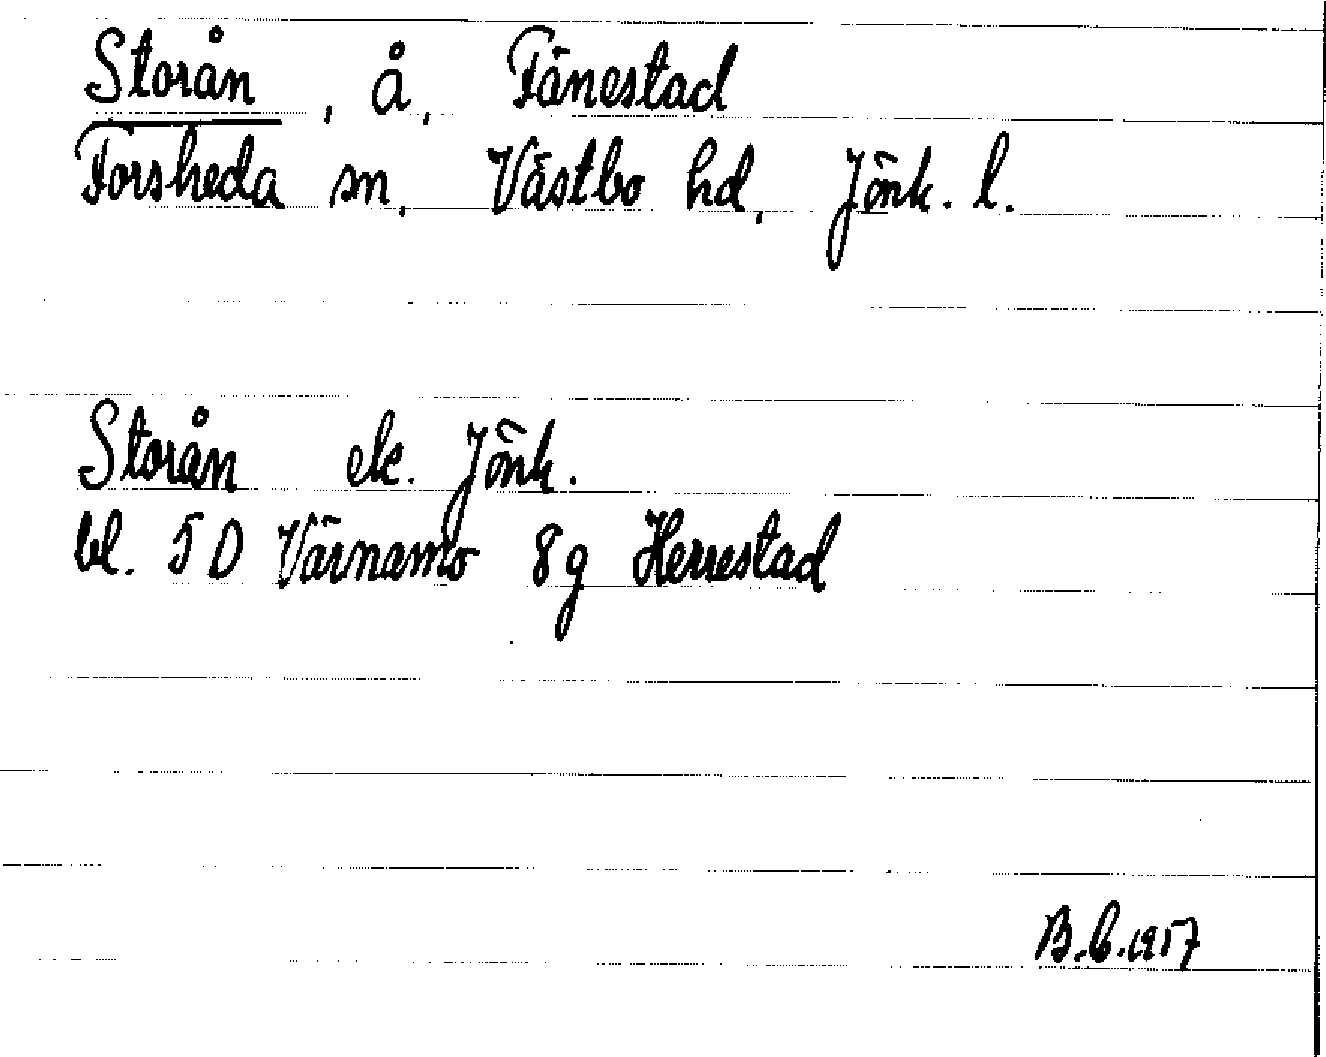 Storån, å, Fånestad
Forsheda sn, Västbo hd, Jönk. l.
Storån ek. Jönk.
bl. 5 D Värnamo 8g Herrestad
B.L.1957